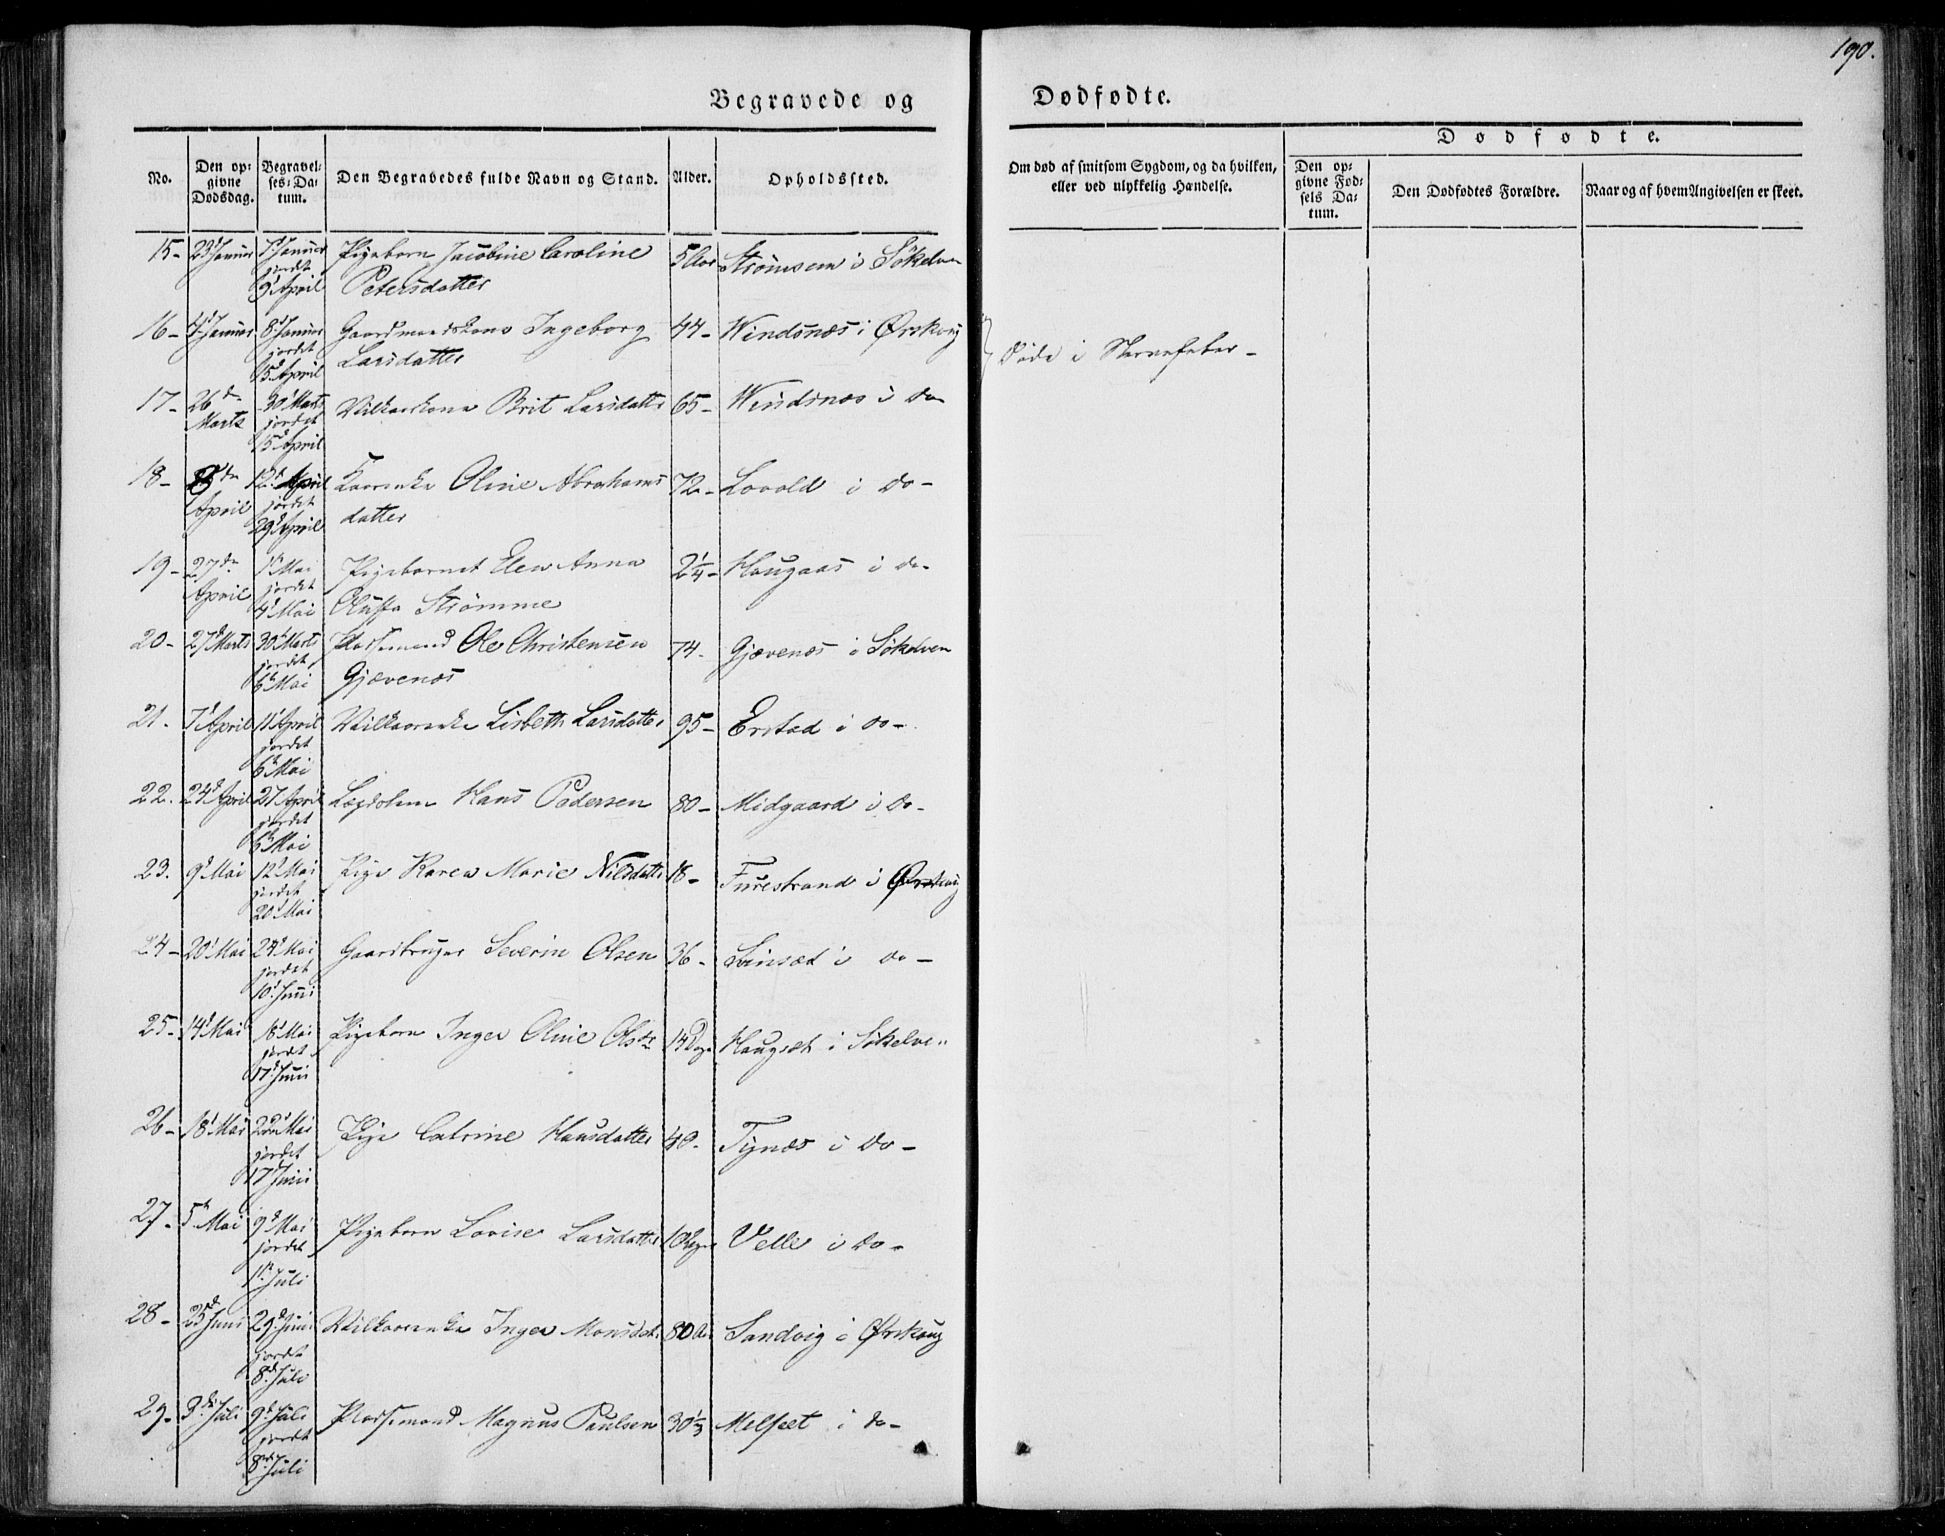 190.
Begravede og
Dødfødte.
No.
Den op-
givne
Dødsdag.
Begravel-
ses-Da-
tum.
Den Begravedes fulde Navn og Stand.
Alder.
Opholdssted.
Om død af smitsom Sygdom, og da hvilken,
eller ved ulykkelig Hændelse.
Dødfødte.
Den op-
givne Fød-
sels Da-
tum.
Den Dødfødtes Forældre.
Naar og af hvem Angivelsen er skeet.
15- 23 Januar 7 Januar jordet 9 April Pigebarn Jacobine Caroline Petersdatter 5 Aar Strømsem i Søkelven
16- 4 Januar 8 Januar jordet 15 April Gaardmandskone Ingeborg Larsdatter 44- Windsnæs i Ørskoug
Døde i Nervefeber-
17- 26de Marts 30 Marts jordet 15 April Vilkaarskone Brit Larsdatter 65- Windsnæs i do
18- 8de April 12 April jordet 29 April Kaarenke Oline Abrahams datter 72- Lovold i do-
19- 27de April 1 Mai jordet 4 Mai Pigebarnet Elen Anna Olufa Strømme 2¼- Haugaas i do-
20- 27 Marts 30 Marts jordet 6 Mai Pladsemand Ole Christensen Gjævenæs 74- Gjævenæs i Søkelven
21. 7 April 11 April jordet 6 Mai Vilkaarenke Lisbeth Larsdatter 95- Erstad i do-
22. 24 April 27 April jordet 6 Mai Lægdslem Hans Pedersen 80- Midgaard i do-
23. 9 Mai 12 Mai jordet 20 Mai Pige Karen Marie Nilsdatter 18- Furestrand i Ørskoug
24- 20 Mai 24 Mai jordet 10 Juni Gaardbruger Severin Olsen 36- Svinsæt i do-
25- 14 Mai 18 Mai jordet 17 Juni Pigebarn Inger Oline Olsdr 14 Dage Haugsæt i Søkelven
26- 18 Mai 22 Mai jordet 17 Juni Pige Catrine Hansdatter 40. Tynæs i do-
27- 5 Mai 9 Mai jordet 1 Juli Pigebarn Lovise Larsdatter 10 Dage Velle i do-
28- 25de Juni 29 Juni jordet 8 Juli Vilkaarenke Inger Monsdr 80 A. Sandvig i Ørskoug
29- 3de Juli 9 Juli jordet 8 Juli Pladsemand Magnus Paulsen 30⅓ Melsæt i do-